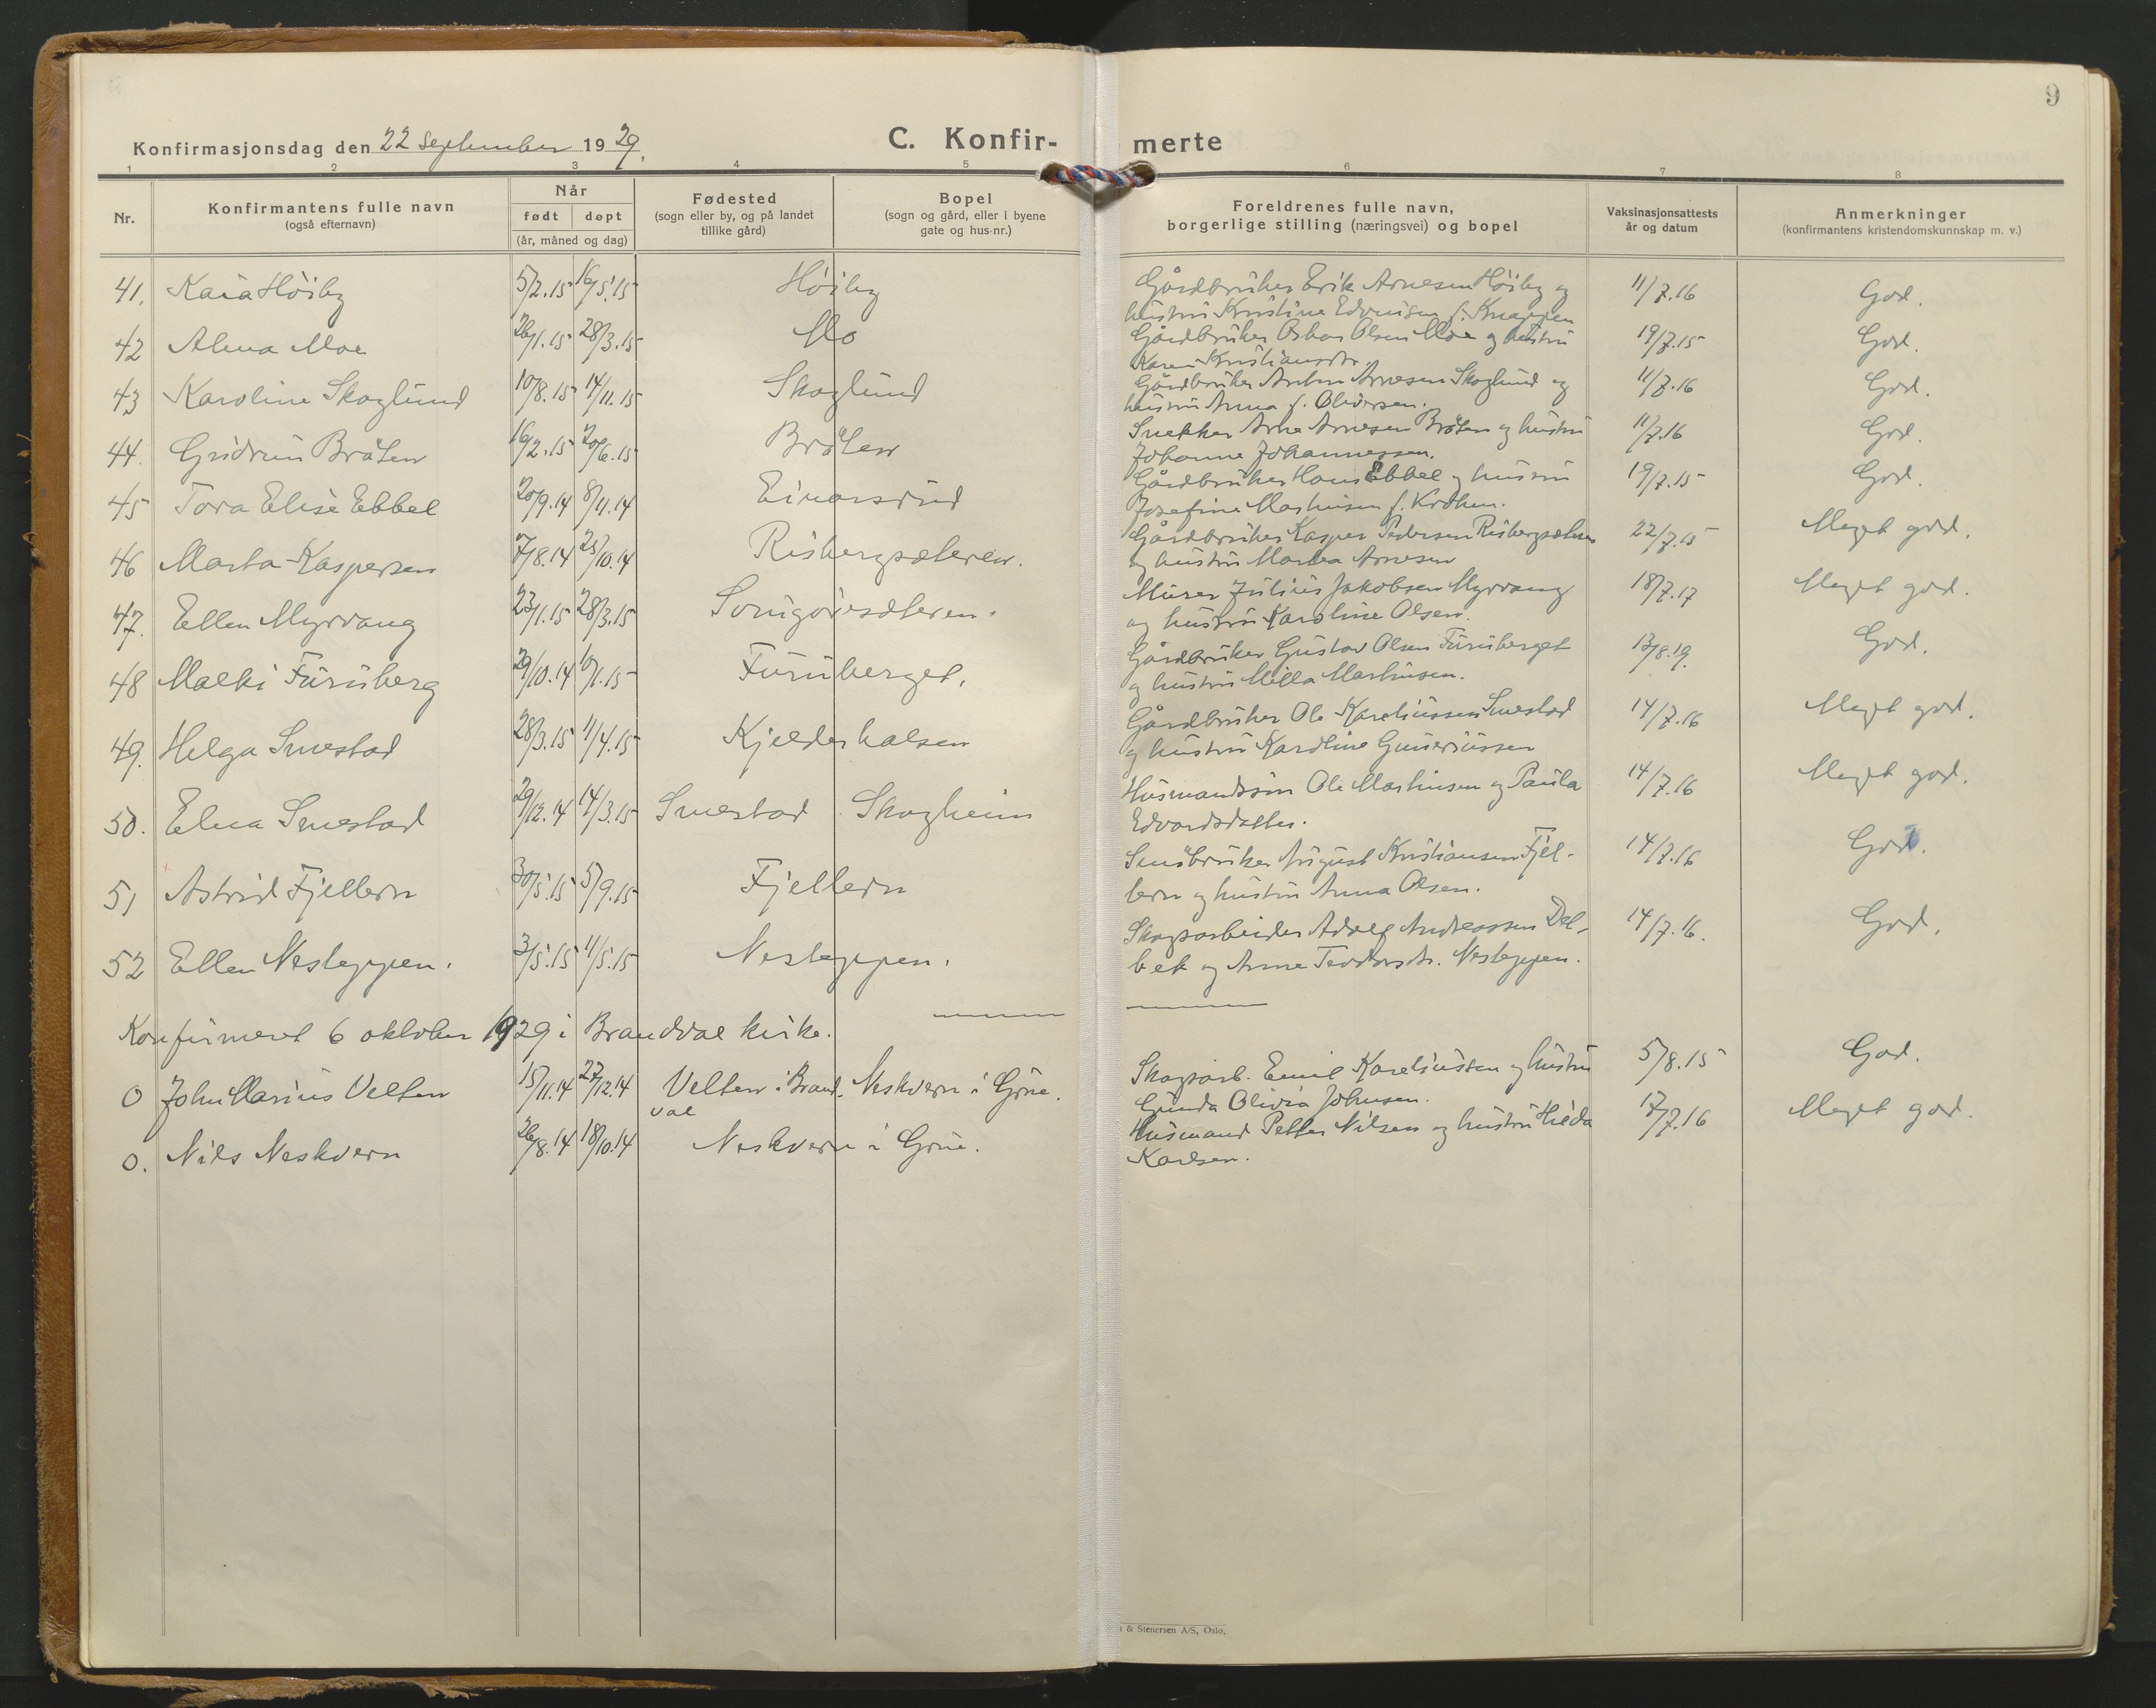 9
Konfirmasjonsdag den 22 September 1929.
C. Konfir- merte
1 2 3 4 5 6 7 8
Nr.
Konfirmantens fulle navn
(også efternavn)
Når
født døpt
(år, måned og dag)
Fødested
(sogn eller by, og på landet
tillike gård)
Bopel
(sogn og gård, eller i byene
gate og hus-nr.)
Foreldrenes fulle navn,
borgerlige stilling (næringsvei) og bopel
Vaksinasjonsattests
år og datum
Anmerkninger
(konfirmantens kristendomskunnskap m. v.)
41. Kaia Höiby 5/2.15 16/5.15 Höiby Gårdbruker Erik Arnesen Höiby og 11/7.16 God.
hustru Kristine Edvnisen f. Knappen
42 Alma Moe 26/1.15 28/3.15 Mo Gårdbruker Oskar Olsen Moe og hustru 19/7.15 God.
Karen Kristiansdtr.
43 Karoline Skoglund 10/8.15 14/11.15 Skoglund Gårdbruker Anton Arnesen Skoglund og 11/7.16 God.
hustru Anna f. Oliversen.
44. Gudrun Bråten 16/2.15 20/6.15 Bråten Snekker Arne Arnesen Bråten og hustru 11/7.16 God.
Johanne Johannessen.
45 Tora Elise Ebbel 20/9.14 8/11.14 Einarsrud Gårdbruker Hans Ebbel og hustru 19/7.15 God.
Josefine Martinsen f. Krohn.
46 Marta Kaspersen 7/8.14 25/10.14 Risbergsæteren. Gårdbruker Kasper Pedersen Risbergsæteren 22/7.15 Meget god.
og hustru Martea Arnesen
47. Ellen Myrvang 23/1.15 28/3.15 Sorigoissæteren. Murer Julius Jakobsen Myrvang 18/7.17 Meget god.
og hustru Karoline Olsen.
48 Malki Furuberg 29/10.14 10/1.15 Furuberget. Gårdbruker Gustav Olsen Furuberget 13/8.19. God.
og hustru Milla Martinsen.
49. Helga Smestad 28/3.15 11/4.15 Kjelderhalsen Gårdbruker Ole Kareliussen Smestad 14/7.16 Meget god.
og hustru Karoline Guneriussen
50. Elna Smestad 29/12.14 14/3.15 Smestad Skogheim Husmandssøn Ole Martinsen og Paula 14/7.16 Meget god.
Edvardsdatter.
51 Astrid Fjellern 30/5.15 5/9.15 Fjellern Småbruker August Kristiansen Fjel- 14/7.16 God.
lern og hustru Anna Olsen.
52 Ellen Nesteppen. 3/5.15 4/5.15 Nesteppen. Skogsarbeider Adolf Andreassen Dal- 14/7.16. God.
bek og Anne Teodorsdtr. Nesteppen.
Konfirmeret 6 oktober 1929 i Brandval kirke.
0 John Marius Velten 15/11.14 27/12.14 Velten i Brand- Neskvern i Grue. Skogsarb. Emil Kareliussen og hustru 5/8.15 God.
val Gunda Olivia Johnsen.
0. Nils Neskvern 26/8.14 18/10.14 Neskvern i Grue. Husmand Petter Nilsen og hustru Hilda 17/7.16 Meget god.
Karlsen.
& Stenersen A/S, Oslo.